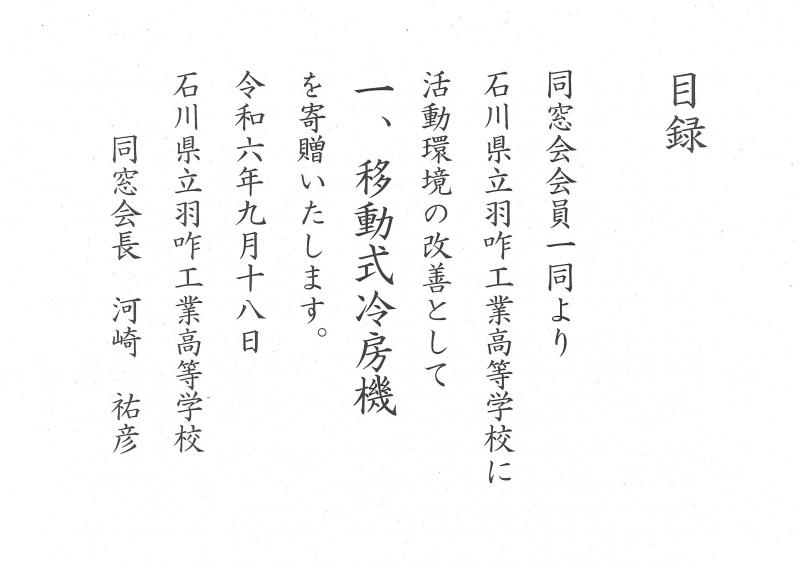 目録
同窓会会員一同より
石川県立羽咋工業高等学校に
活動環境の改善として
一、移動式冷房機
を寄贈いたします。
令和六年九月十八日
石川県立羽咋工業高等学校
同窓会長 河崎 祐彦